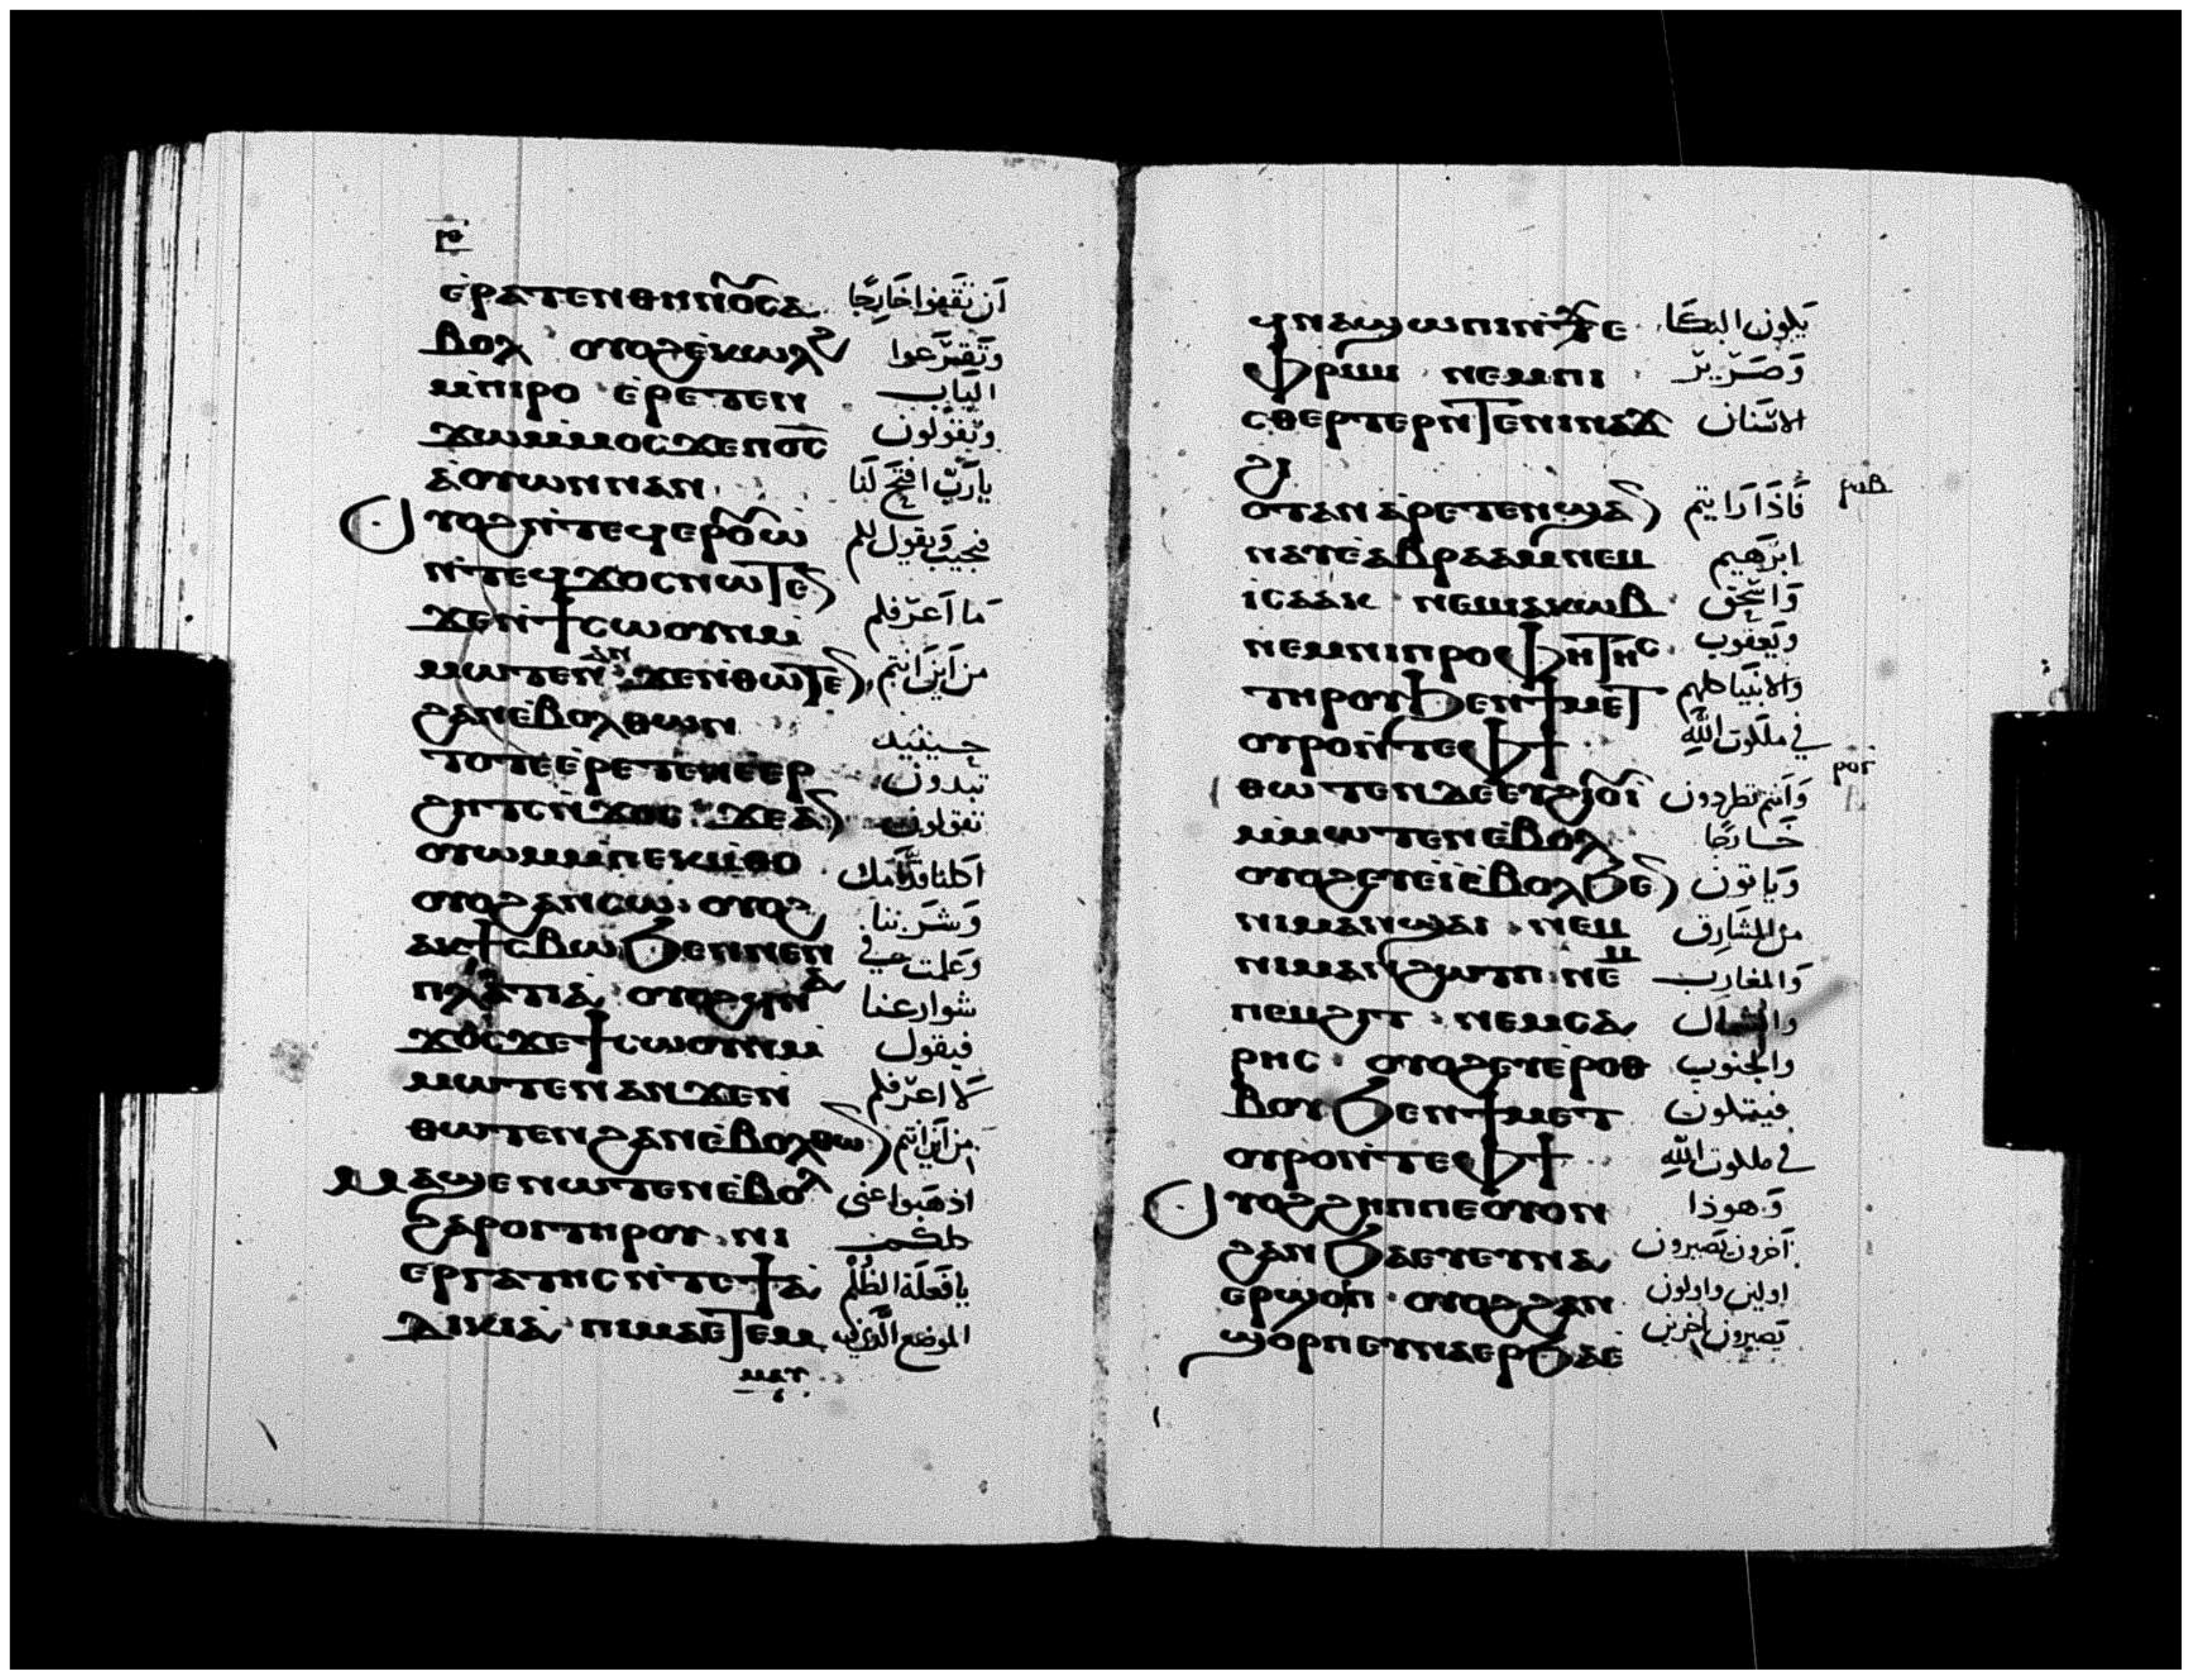 ⲣⲑ
ⲉ̀ⲣⲁⲧⲉⲛⲑⲏⲛⲟⲩⲥⲁ ان تقفوا خارجا
ⲃⲟⲗ ⲟⲩⲟϩⲉ̀ⲕⲱⲗϩ وتقرعوا
ⲙ̀ⲡⲓⲣⲟ ⲉ̀ⲣⲉⲧⲉⲛ الباب
ϫⲱⲙ̀ⲙⲟⲥϫⲉⲡⲟ̅ⲥ̅ وتقولون
ⲁ̀ⲟⲩⲱⲛⲛⲁⲛ يارب افتح لنا
ⲟⲩⲟϩⲛ̀ⲧⲉϥⲉⲣⲟⲩⲱ̀ فيجيب ويقول لكم
ⲛ̀ⲧⲉϥϫⲟⲥⲛⲱⲧⲉⲛ
ϫⲉⲛ̀ϯⲥⲱⲟⲩⲛⲙ̀ ما اعرفكم
ⲙⲱⲧⲉⲛⲁⲛ ϫⲉⲛ̀ⲑⲱⲧⲉⲛ من اين انتم
ϩⲁⲛⲉ̀ⲃⲟⲗⲑⲱⲛ
ⲧⲟⲧⲉⲉ̀ⲣⲉⲧⲉⲛⲉⲉⲣ حينيد تبدون
ϩⲏⲧⲥⲛ̀ϫⲟⲥ ϫⲉⲁⲛ تقولون
ⲟⲩⲱⲙⲙ̀ⲡⲉⲕⲙ̀ⲑⲟ اكلنا قدامك
ⲟⲩⲟϩⲁⲛⲥⲱ ⲟⲩⲟϩ وشربنا
ⲁⲕϯⲥⲃⲱϧⲉⲛⲛⲉⲛ وعلمت في
ⲡⲗⲁⲧⲓⲁ ⲟⲩⲟϩϥⲛⲁ شوارعنا
ϫⲟⲥϫⲉϯⲥⲱⲟⲩⲛⲙ̀ فيقول
ⲙⲱⲧⲉⲛⲁⲛϫⲉⲛ̀ لا اعرفكم
ⲑⲱⲧⲉⲛϩⲁⲛⲉ̀ⲃⲟⲗⲑⲱⲛ من اين انتم
ⲙⲁϣⲉⲛⲱⲧⲉⲛⲉ̀ⲃⲟⲗ اذهبوا عني
ϩⲁⲣⲟⲓⲧⲏⲣⲟⲩ ⲛⲓ كلكم
ⲉⲣⲅⲁⲧⲏⲥⲛ̀ⲧⲉϯⲁ̀ يا فعلة الظلم
ⲇⲓⲕⲓⲁ ⲡⲓⲙⲁⲉⲧⲉⲙ الموضع الذي
ⲙⲁⲩ
ϥⲛⲁϣⲱⲡⲓⲛ̀ϫⲉ يكون البكا
ⲫⲣⲓⲙⲓ ⲛⲉⲙⲡⲓ وصرير
ⲥⲑⲉⲣⲧⲉⲣⲛ̀ⲧⲉⲛⲓⲛⲁϫ الاسنان
ϩⲓ
ⲟⲧⲁⲛ ⲁⲣⲉⲧⲉⲛϣⲁⲛ فاذا رايتم ⲣⲟⲃ
ⲛⲁⲩⲉ̀ⲁⲃⲣⲁⲁⲙⲛⲉⲙ ابرهيم
ⲓⲥⲁⲁⲕ ⲛⲉⲙⲓⲁⲕⲱⲃ واسحق
ⲛⲉⲙⲛⲓⲡⲣⲟⲫⲏⲧⲏⲥ ويعقوب
ⲧⲏⲣⲟⲩϧⲉⲛϯⲙⲉⲧ والانبيا كلهم
ⲟⲩⲣⲟⲛ̀ⲧⲉⲫϯ في ملكوت الله
ⲑⲱⲧⲉⲛⲇⲉⲉⲩϩⲓⲟⲩⲓ̀ وانتم تطردون ⲣⲟⲅ
ⲙ̀ⲙⲱⲧⲉⲛⲉ̀ⲃⲟⲗ خارجا
ⲟⲩⲟϩⲉⲩⲉ̀ⲓ̀ⲉ̀ⲃⲟⲗϧⲉⲛ وياتون
ⲛⲓⲙⲁⲛϣⲁⲓ ⲛⲉⲙ من المشارق
ⲛⲓⲙⲁⲛϩⲱⲧⲡ ⲛⲉⲙ والمغارب
ⲡⲉⲙϩⲓⲧ ⲛⲉⲙⲥⲁ والشمال
ⲣⲏⲥ ⲟⲩⲟϩⲉⲩⲉ̀ⲣⲟⲑ والجنوب
ⲃⲟⲩϧⲉⲛϯⲙⲉⲧ فيتكون
ⲟⲩⲣⲟⲛ̀ⲧⲉⲫϯ في ملكوت الله
ⲟⲩⲟϩϩⲏⲡⲡⲉⲟⲩⲟⲛ وهوذا
ϩⲁⲛϧⲁⲉⲩⲉⲩⲛⲁ اخرون يصيرون
ⲉⲣϣⲟⲣⲡ ⲟⲩⲟϩϩⲁⲛ اولين واولون
ϣⲟⲣⲡⲉⲩⲛⲁⲉⲣϧⲁⲉ̀ يصيرون اخرين